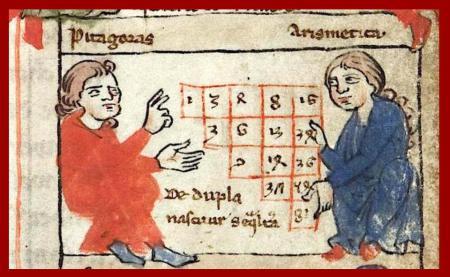 Pitagoras Arismetica
1 2 4 8 16
3 6 12 24
9 18 36
27 54
De dupla
nascitur
81